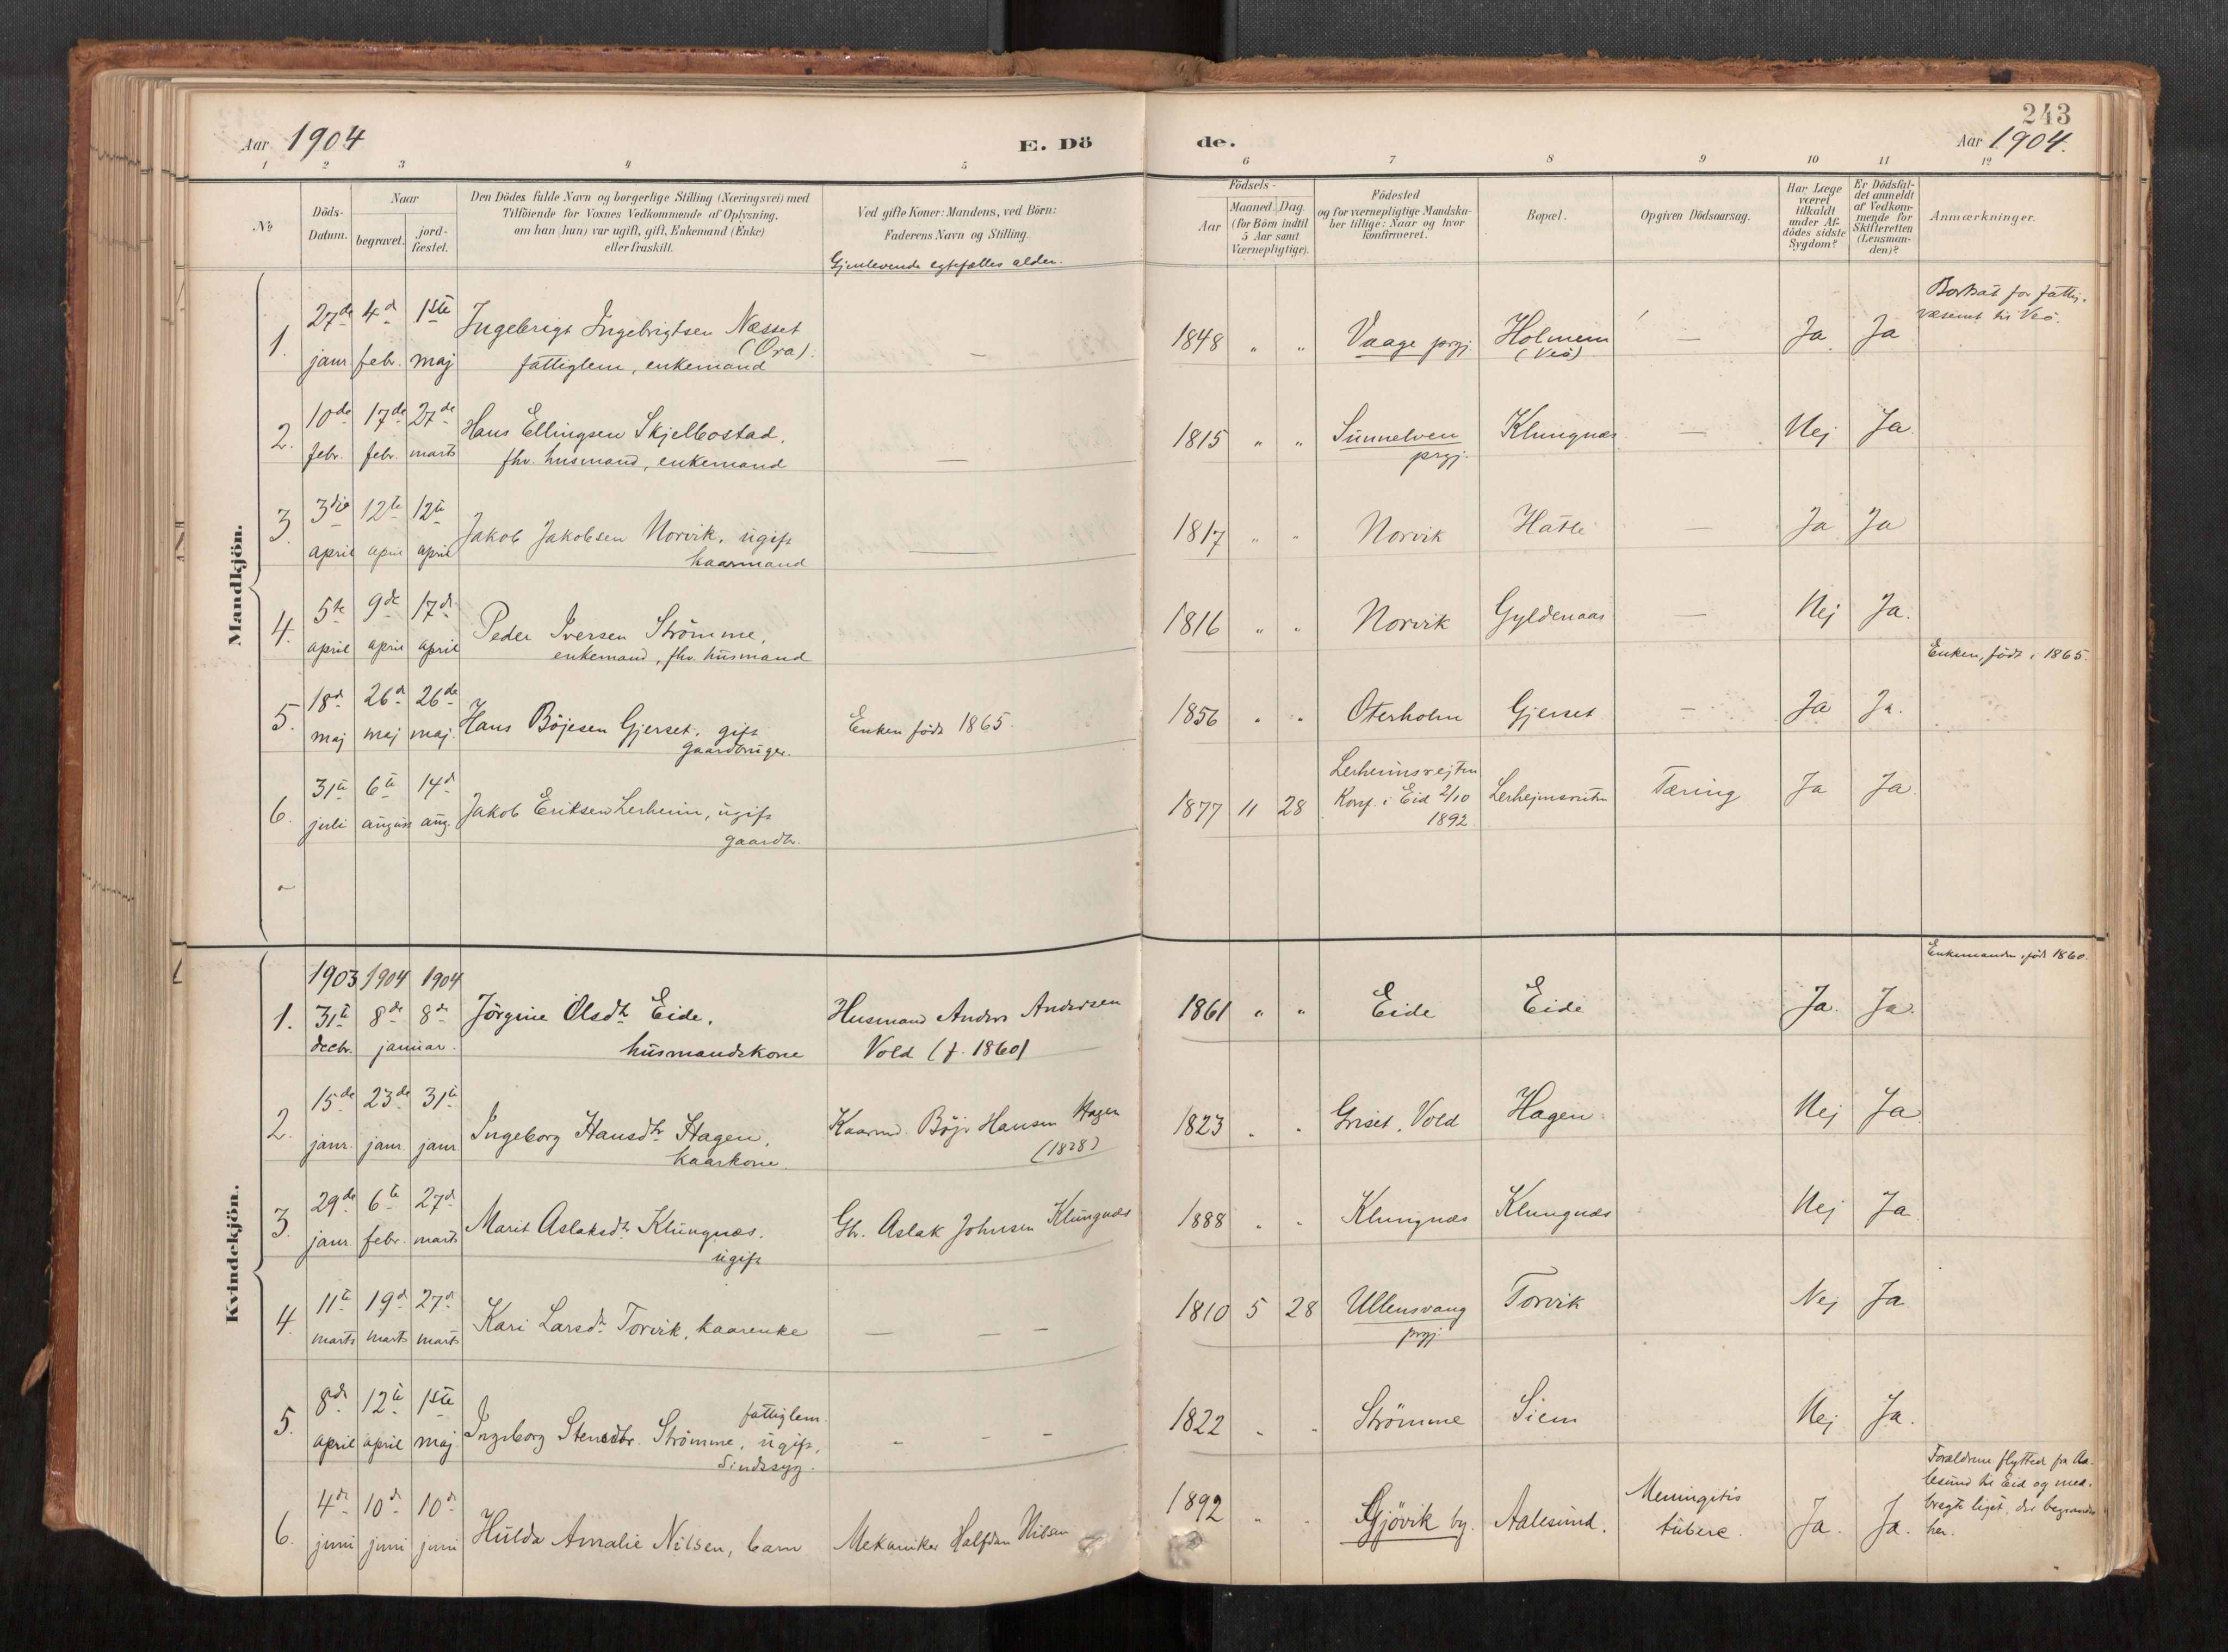 243
Aar 1904 E. Dö de. Aar 1904.
1 2 3 4 5 6 7 8 9 10 11 12
No
Döds-Datum.
Naar
begravet.
jord-fæstet.
Den Dödes fulde Navn og borgerlige Stilling (Næringsvei) med
Tilföiende for Voxnes Vedkommende af Oplysning,
om han (hun) var ugift, gift, Enkemand (Enke)
eller fraskilt.
Ved gifte Koner: Mandens, ved Börn:
Faderens Navn og Stilling.
Gjenlevende egtefælles alder.
Födsels-
Aar
Maaned Dag
(for Börn indtil
5 Aar samt
Værnepligtige).
Födested
og for værnepligtige Mandska-
ber tillige: Naar og hvor
konfirmeret.
Bopæl.
Opgiven Dödsaarsag.
Har Læge
været
tilkaldt
under Af-
dödes sidste
Sygdom?
Er Dödsfal-
det anmeldt
af Vedkom-
mende for
Skifteretten
(Lensman-
den)?
Anmærkninger.
Mandkjön.
1. 27de janr. 4d febr. 1ste maj
Ingebrigt Ingebrigtsen Næsset
(Ora).
fattiglem, enkemand
—
1848 " " Vaage prgj. Holmem
(Veö)
— Ja Ja
Bortsat for fattig-
væsenet til Veö.
2. 10de febr. 17de febr. 27de marts
Hans Ellingsen Skjelbostad,
fhv. husmand, enkemand
—
1815 " " Sunnelven
prgj.
Klungnæs — Nej Ja
3. 3die april 12te april 12te april
Jakob Jakobsen Norvik, ugift
kaarmand
—
1817 " " Norvik Hatle — Ja Ja
4. 5te april 9de april 17d april
Peder Iversen Strömme,
enkemand, fhv. husmand
1816 " " Norvik Gyldenaas — Nej Ja.
Enken, född i 1865.
5. 18d maj 26d maj 26de maj.
Hans Böjesen Gjerset, gift
gaardbruger.
Enken född 1865.
1856 " " Oterholm Gjerset — Ja Ja.
6. 31te juli 6te august 14d aug.
Jakob Eriksen Lerheim, ugift
gaardbr.
1877 11 28
Lerheimsrejten
Konf. i Eid 2/10
1892.
Tæring Ja Ja.
Kvindekjön.
1903 1904 1904
1. 31te decbr. 8de 8de januar.
Jörgine Olsdtr Eide,
husmandskone
Husmand Anders Andersen
Vold (f. 1860)
1861 " " Eide Eide Ja. Ja.
Enkemanden, född 1860.
2. 15de janr. 23de janr. 31te janr.
Ingeborg Hansdtr Hagen,
kaarkone.
Kaarmd. Böje Hansen Hagen
(1828)
1823 " " Griset, Vold Hagen Nej Ja
3. 29de janr. 6te febr. 27d marts
Marit Aslaksdtr Klungnæs,
ugift
Gbr. Aslak Johnsen Klungnæs
1888 " " Klungnæs Klungnæs Nej Ja
4. 11te marts 19d marts 27d marts
Kari Larsdtr Torvik, kaarenke
— — —
1810 5 28 Ullensvang
prgj.
Torvik Nej Ja
5. 8de april 12te april 1ste maj.
fattiglem.
Ingeborg Stensdtr. Strömme, ugift,
Sindssyg.
- - -
1822 " " Strömme Siem Nej Ja.
6. 4de juni 10d juni 10d juni
Hulda Amalie Nilsen, barn
Mekaniker Halfdan Nilsen
1892 " " Gjövik by. Aalesund.
Meningitis
tuberc.
Ja. Ja.
Forældrene flyttede fra Aa-
lesund til Eid og med-
bragte liget, der begravedes
her.